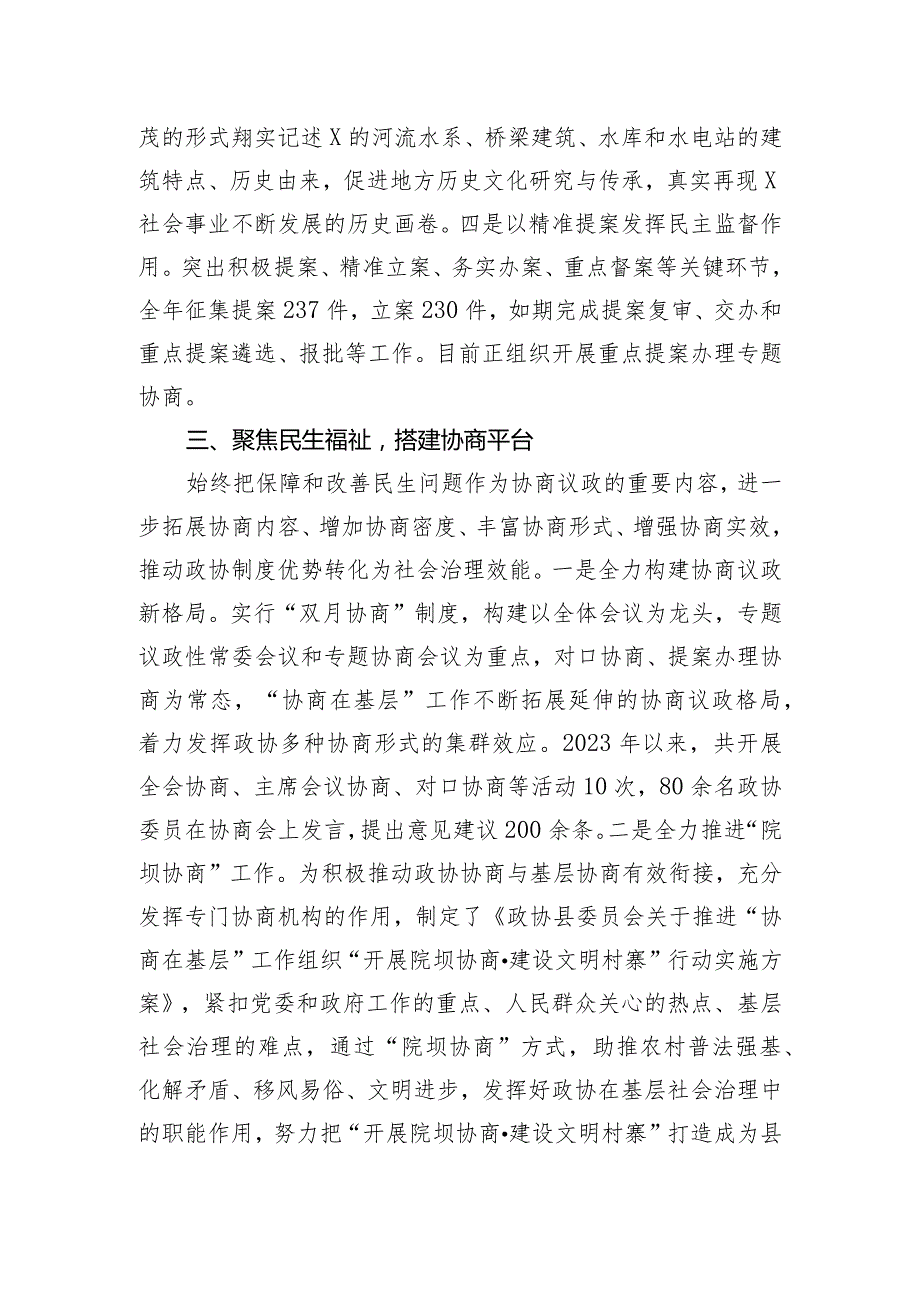 茂的形式翔实记述 X 的河流水系、桥梁建筑、水库和水电站的建
筑特点、历史由来，促进地方历史文化研究与传承，真实再现 X
社会事业不断发展的历史画卷。四是以精准提案发挥民主监督作
用。突出积极提案、精准立案、务实办案、重点督案等关键环节，
全年征集提案 237 件，立案 230 件，如期完成提案复审、交办和
重点提案遴选、报批等工作。目前正组织开展重点提案办理专题
协商。
三、聚焦民生福祉，搭建协商平台
始终把保障和改善民生问题作为协商议政的重要内容，进一
步拓展协商内容、增加协商密度、丰富协商形式、增强协商实效，
推动政协制度优势转化为社会治理效能。一是全力构建协商议政
新格局。实行“双月协商”制度，构建以全体会议为龙头，专题
议政性常委会议和专题协商会议为重点，对口协商、提案办理协
商为常态，“协商在基层”工作不断拓展延伸的协商议政格局，
着力发挥政协多种协商形式的集群效应。2023 年以来，共开展
全会协商、主席会议协商、对口协商等活动 10 次，80 余名政协
委员在协商会上发言，提出意见建议 200 余条。二是全力推进“院
坝协商”工作。为积极推动政协协商与基层协商有效衔接，充分
发挥专门协商机构的作用，制定了《政协县委员会关于推进“协
商在基层”工作组织“开展院坝协商•建设文明村寨”行动实施方
案》，紧扣党委和政府工作的重点、人民群众关心的热点、基层
社会治理的难点，通过“院坝协商”方式，助推农村普法强基、
化解矛盾、移风易俗、文明进步，发挥好政协在基层社会治理中
的职能作用，努力把“开展院坝协商•建设文明村寨”打造成为县